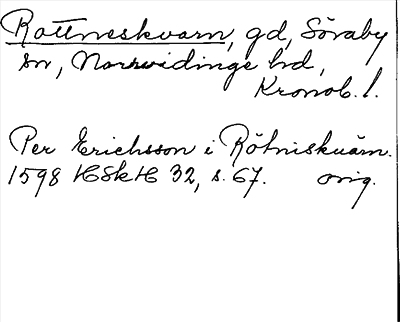 Rottneskvarn, gd, Söraby
sn, Norrvidinge hd,
Kronob. l.
Per Erichsson i Rötniskuärn.
1598 HSkH 32, s. 67. orig.